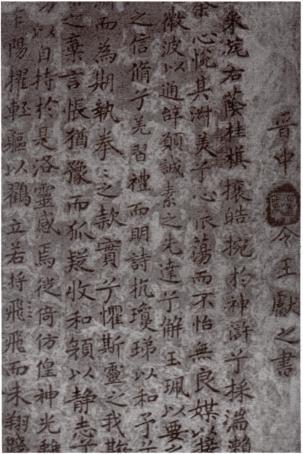 晋中令王獻之書
采旄右蔭桂棋攘皓捥於神滸兮採湍瀨
余心恱其淑美兮心振蕩而不怡無良媒以接
微波以通辝願誠素之先達兮解玉珮以要之
之信脩兮羌習禮而明詩抗瓊珶以和予兮
而為期執拳〻之款實兮懼斯靈之我斯
之棄言悵猶豫而狐疑收和顏以静志兮
以自持於是洛靈感焉徙倚仿偟神光離
乍陽擢輕軀以鶴立若将飛飛而未翔踐